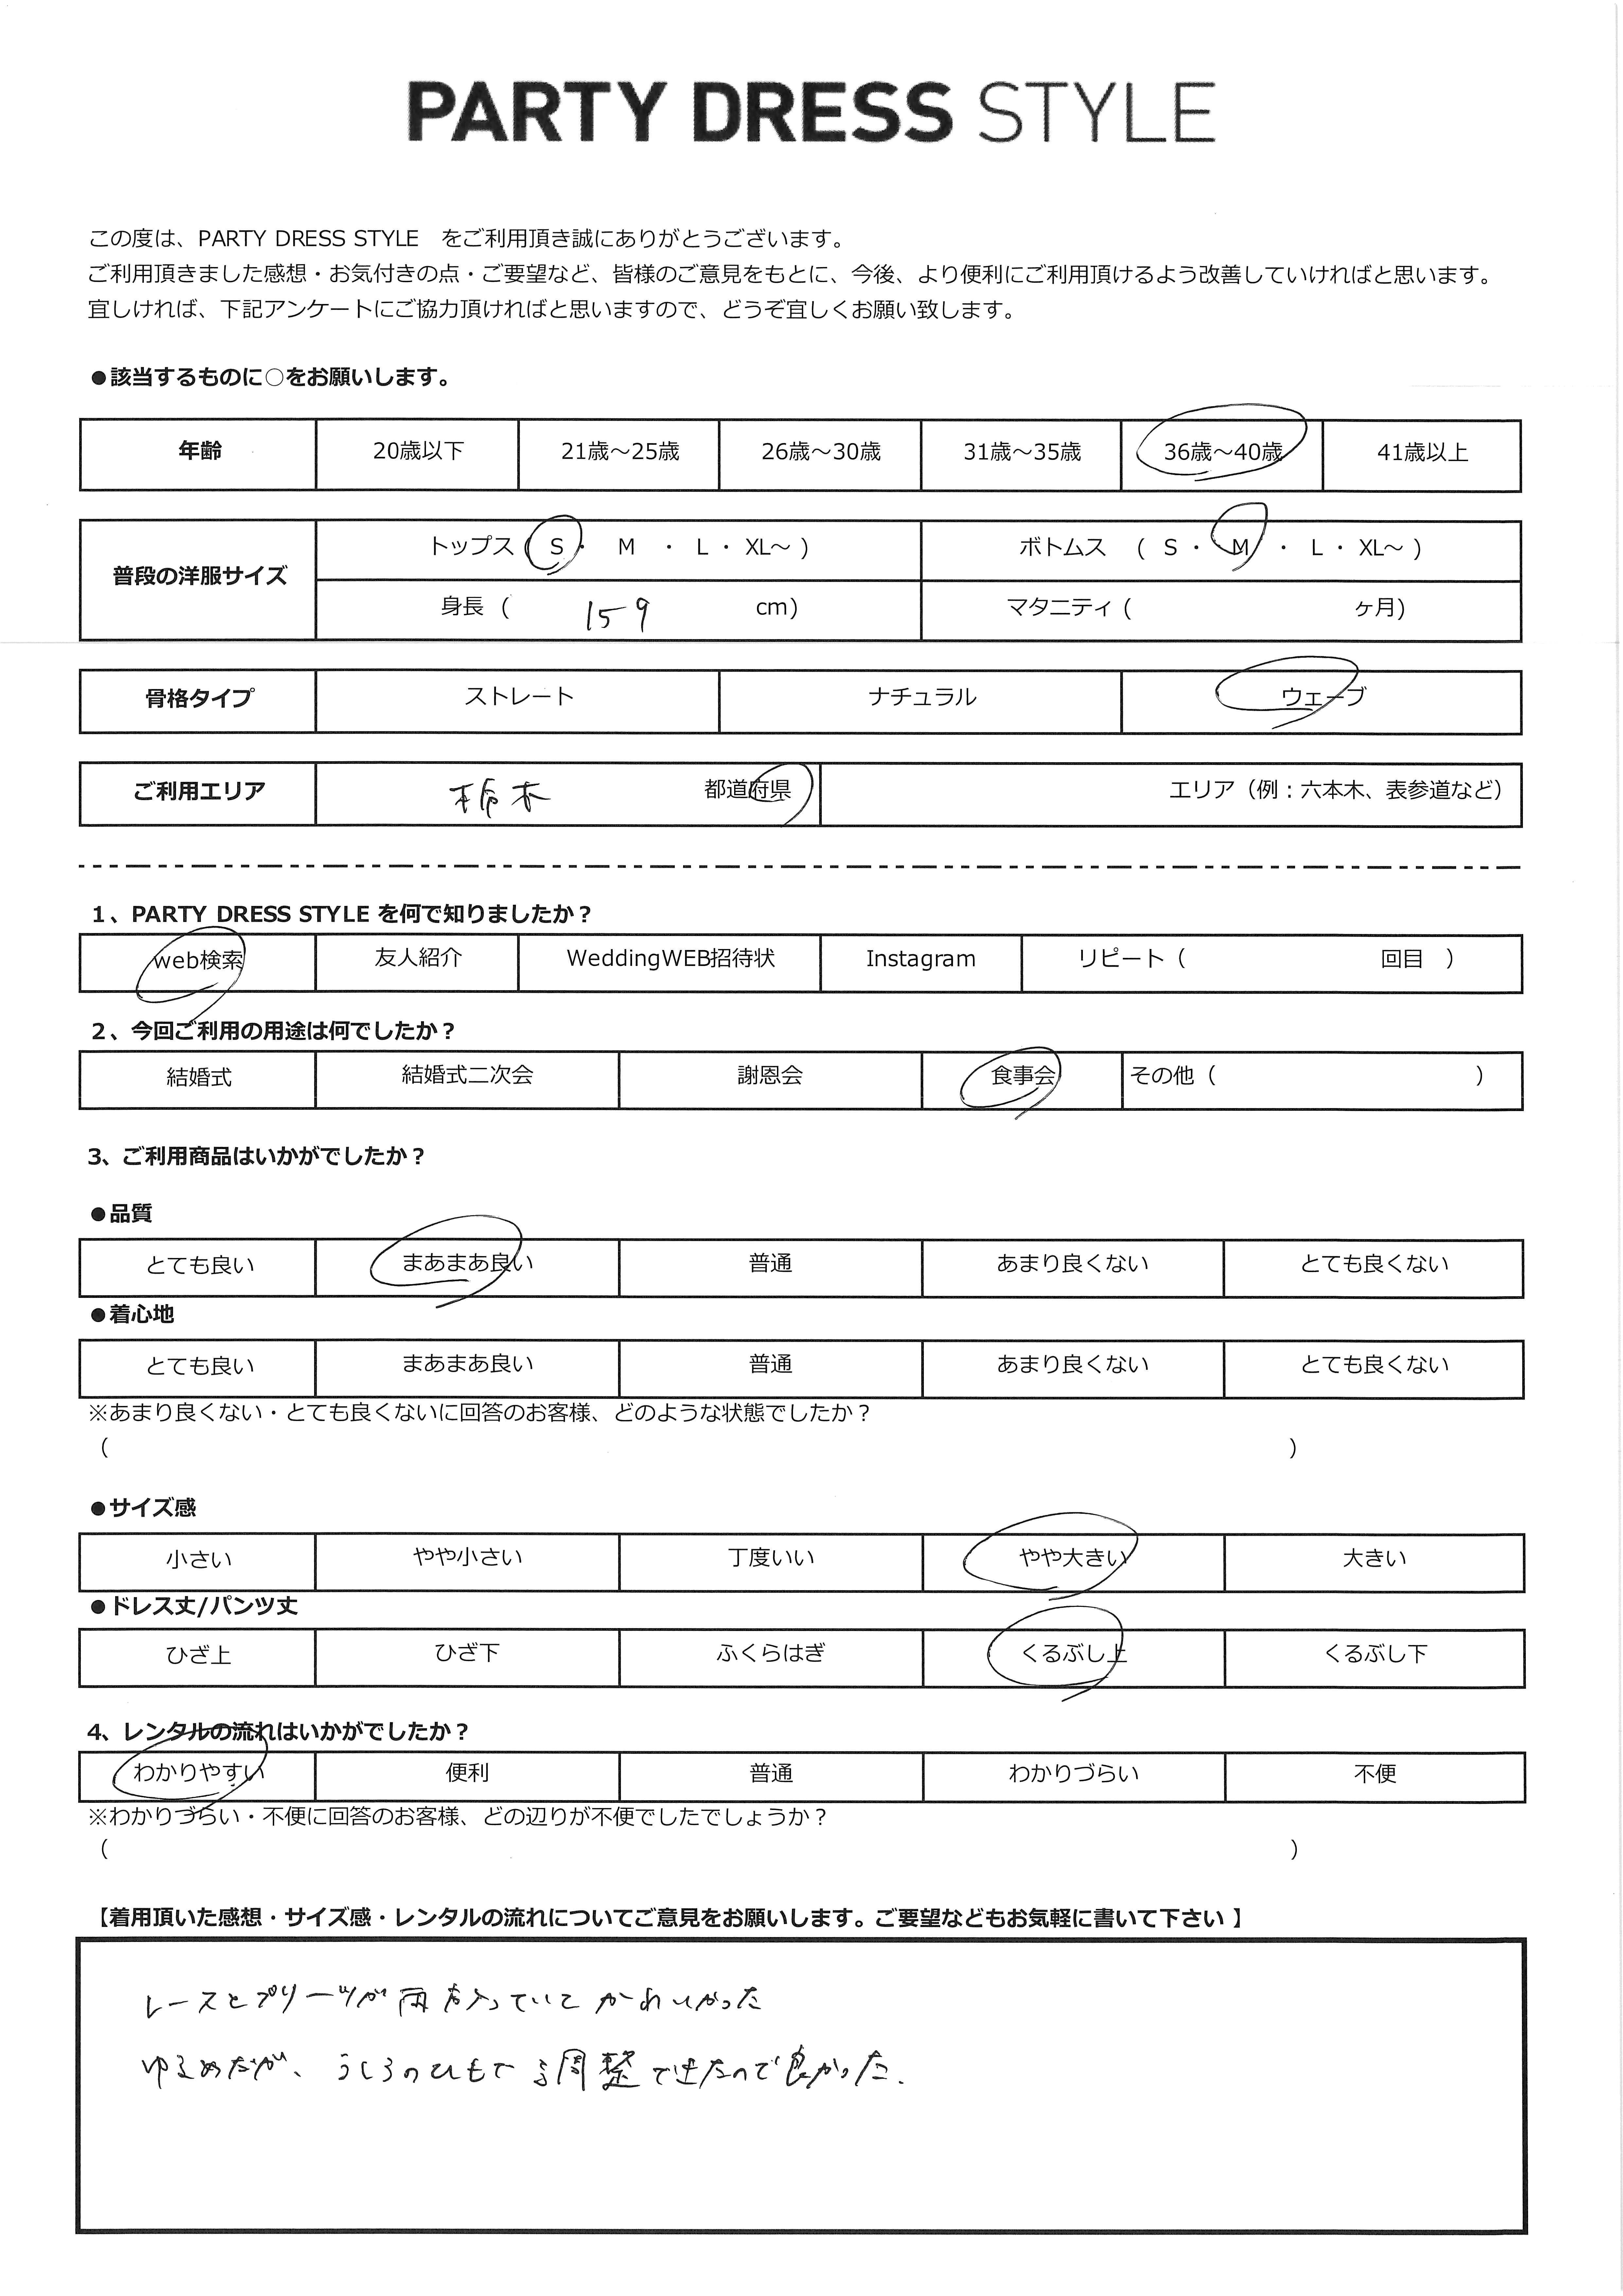 PARTY DRESS STYLE
この度は、PARTY DRESS STYLE　をご利用頂き誠にありがとうございます。
ご利用頂きました感想・お気付きの点・ご要望など、皆様のご意見をもとに、今後、より便利にご利用頂けるよう改善していければと思います。
宜しければ、下記アンケートにご協力頂ければと思いますので、どうぞ宜しくお願い致します。
●該当するものに○をお願いします。
年齢 20歳以下 21歳～25歳 26歳～30歳 31歳～35歳 36歳～40歳 41歳以上
普段の洋服サイズ トップス ( S ・ M ・ L ・ XL～ ) ボトムス ( S ・ M ・ L ・ XL～ )
身長 ( 159 cm) マタニティ ( ヶ月)
骨格タイプ ストレート ナチュラル ウェーブ
ご利用エリア 栃木 都道府県 エリア（例：六本木、表参道など）
1、PARTY DRESS STYLE を何で知りましたか？
web検索 友人紹介 WeddingWEB招待状 Instagram リピート（ 回目 ）
2、今回ご利用の用途は何でしたか？
結婚式 結婚式二次会 謝恩会 食事会 その他（ ）
3、ご利用商品はいかがでしたか？
●品質
とても良い まあまあ良い 普通 あまり良くない とても良くない
●着心地
とても良い まあまあ良い 普通 あまり良くない とても良くない
※あまり良くない・とても良くないに回答のお客様、どのような状態でしたか？
（ ）
●サイズ感
小さい やや小さい 丁度いい やや大きい 大きい
●ドレス丈/パンツ丈
ひざ上 ひざ下 ふくらはぎ くるぶし上 くるぶし下
4、レンタルの流れはいかがでしたか？
わかりやすい 便利 普通 わかりづらい 不便
※わかりづらい・不便に回答のお客様、どの辺りが不便でしたでしょうか？
（ ）
【着用頂いた感想・サイズ感・レンタルの流れについてご意見をお願いします。ご要望などもお気軽に書いて下さい 】
レースとプリーツが両方入っていてかわいかった
ゆるめだが、うしろのひもで調整できたので良かった.